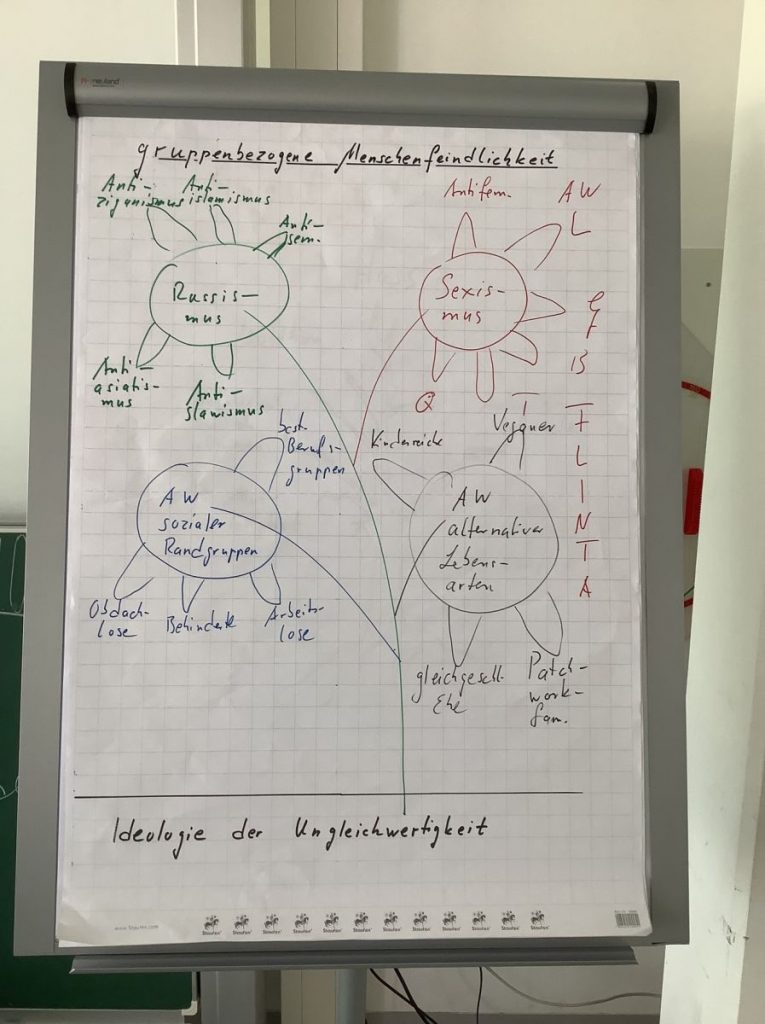 neuland
gruppenbezogene Menschenfeindlichkeit
Anti-
ziganismus
Anti-
islamismus
Anti-
sem.
Rassis-
mus
Anti-
asiatis-
mus
Anti-
slawismus
Antifem.
AW
L
Sexis-
mus
G
B
T
Q
FLINTA
best.
Berufs-
gruppen
AW
sozialer
Randgruppen
Obdach-
lose
Behinderte
Arbeits-
lose
Kinderreiche
Veganer
AW
alternativer
Lebens-
arten
gleichgeschl.
Ehe
Patch-
work-
fam.
Ideologie der Ungleichwertigkeit
www.Staufen.com
Staufen Staufen Staufen Staufen Staufen Staufen Staufen Staufen Staufen Staufen Staufen Staufen